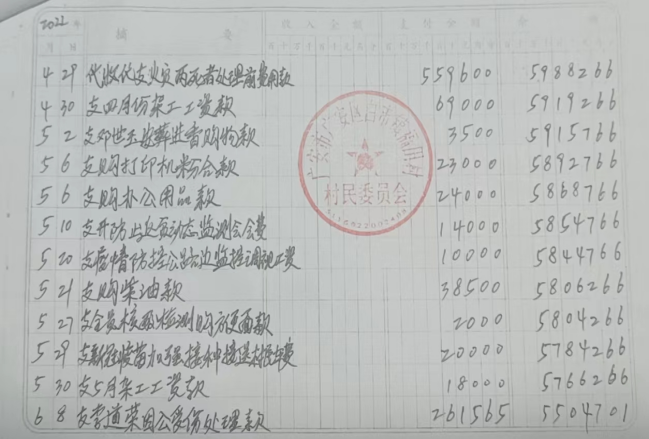 2022年 摘要 收入金额 支付金额 余额
月 日
4 29 代收代支火灾两死者处理前费用款 559600 5988266
4 30 支四月份杂工工资款 69000 5919266
5 2 支邓世玉 购物款 3500 5915766
5 6 支购打印机粉合款 23000 5892766
5 6 支购办公用品款 24000 5868766
5 10 支开防止返贫动态监测会会费 14000 5854766
5 20 支疫情防控公路边监控调视工资 10000 5844766
5 21 支购柴油款 38500 5806266
5 27 支全员核酸检测购方便面款 2000 5804266
5 29 支新冠疫苗加强接种接送 费 20000 5784266
5 30 支5月杂工工资款 18000 5766266
6 8 支李道菜因公受伤处理款 261565 5504701
广安市广安区白市镇 村
村民委员会